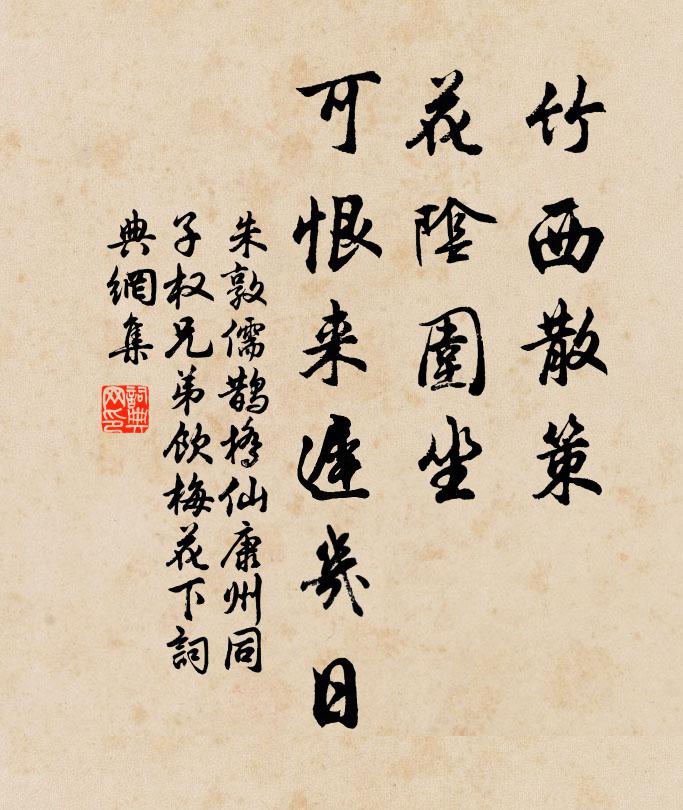 竹西散策
花陰圍坐
可恨来遲幾日
朱敦儒鵲橋仙康州同
子权兄弟飲梅花下詞
典網集
詞典网印